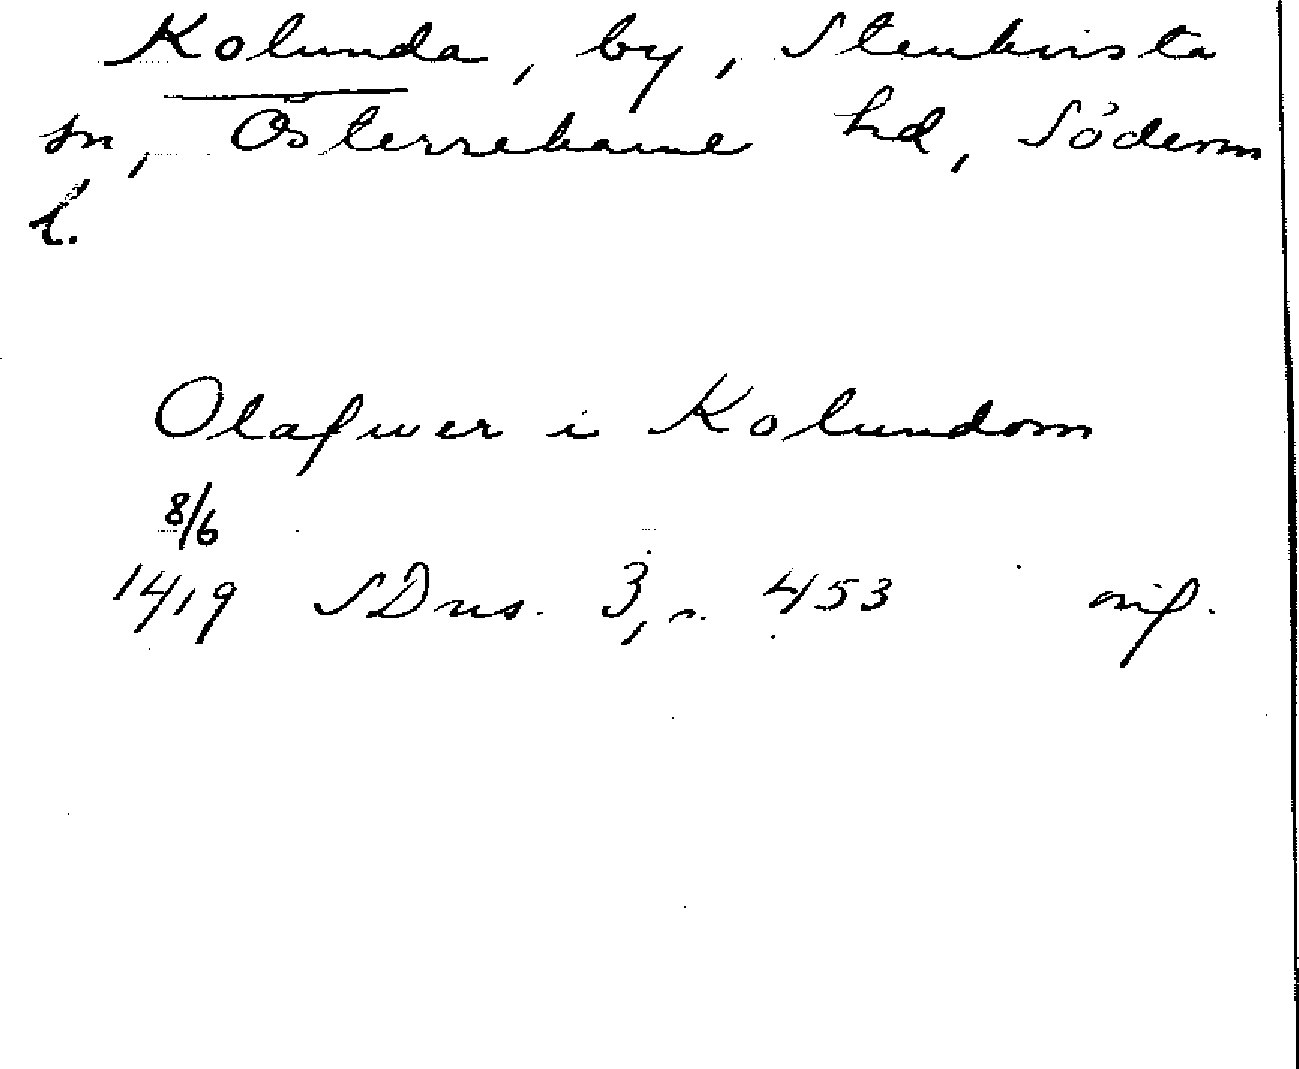 Kolunda, by, Stenkvista
sn, Österrekarne hd, Söderm
l.
Olafwer i Kolundom
8/6
1419 SDns. 3, s. 453 orig.